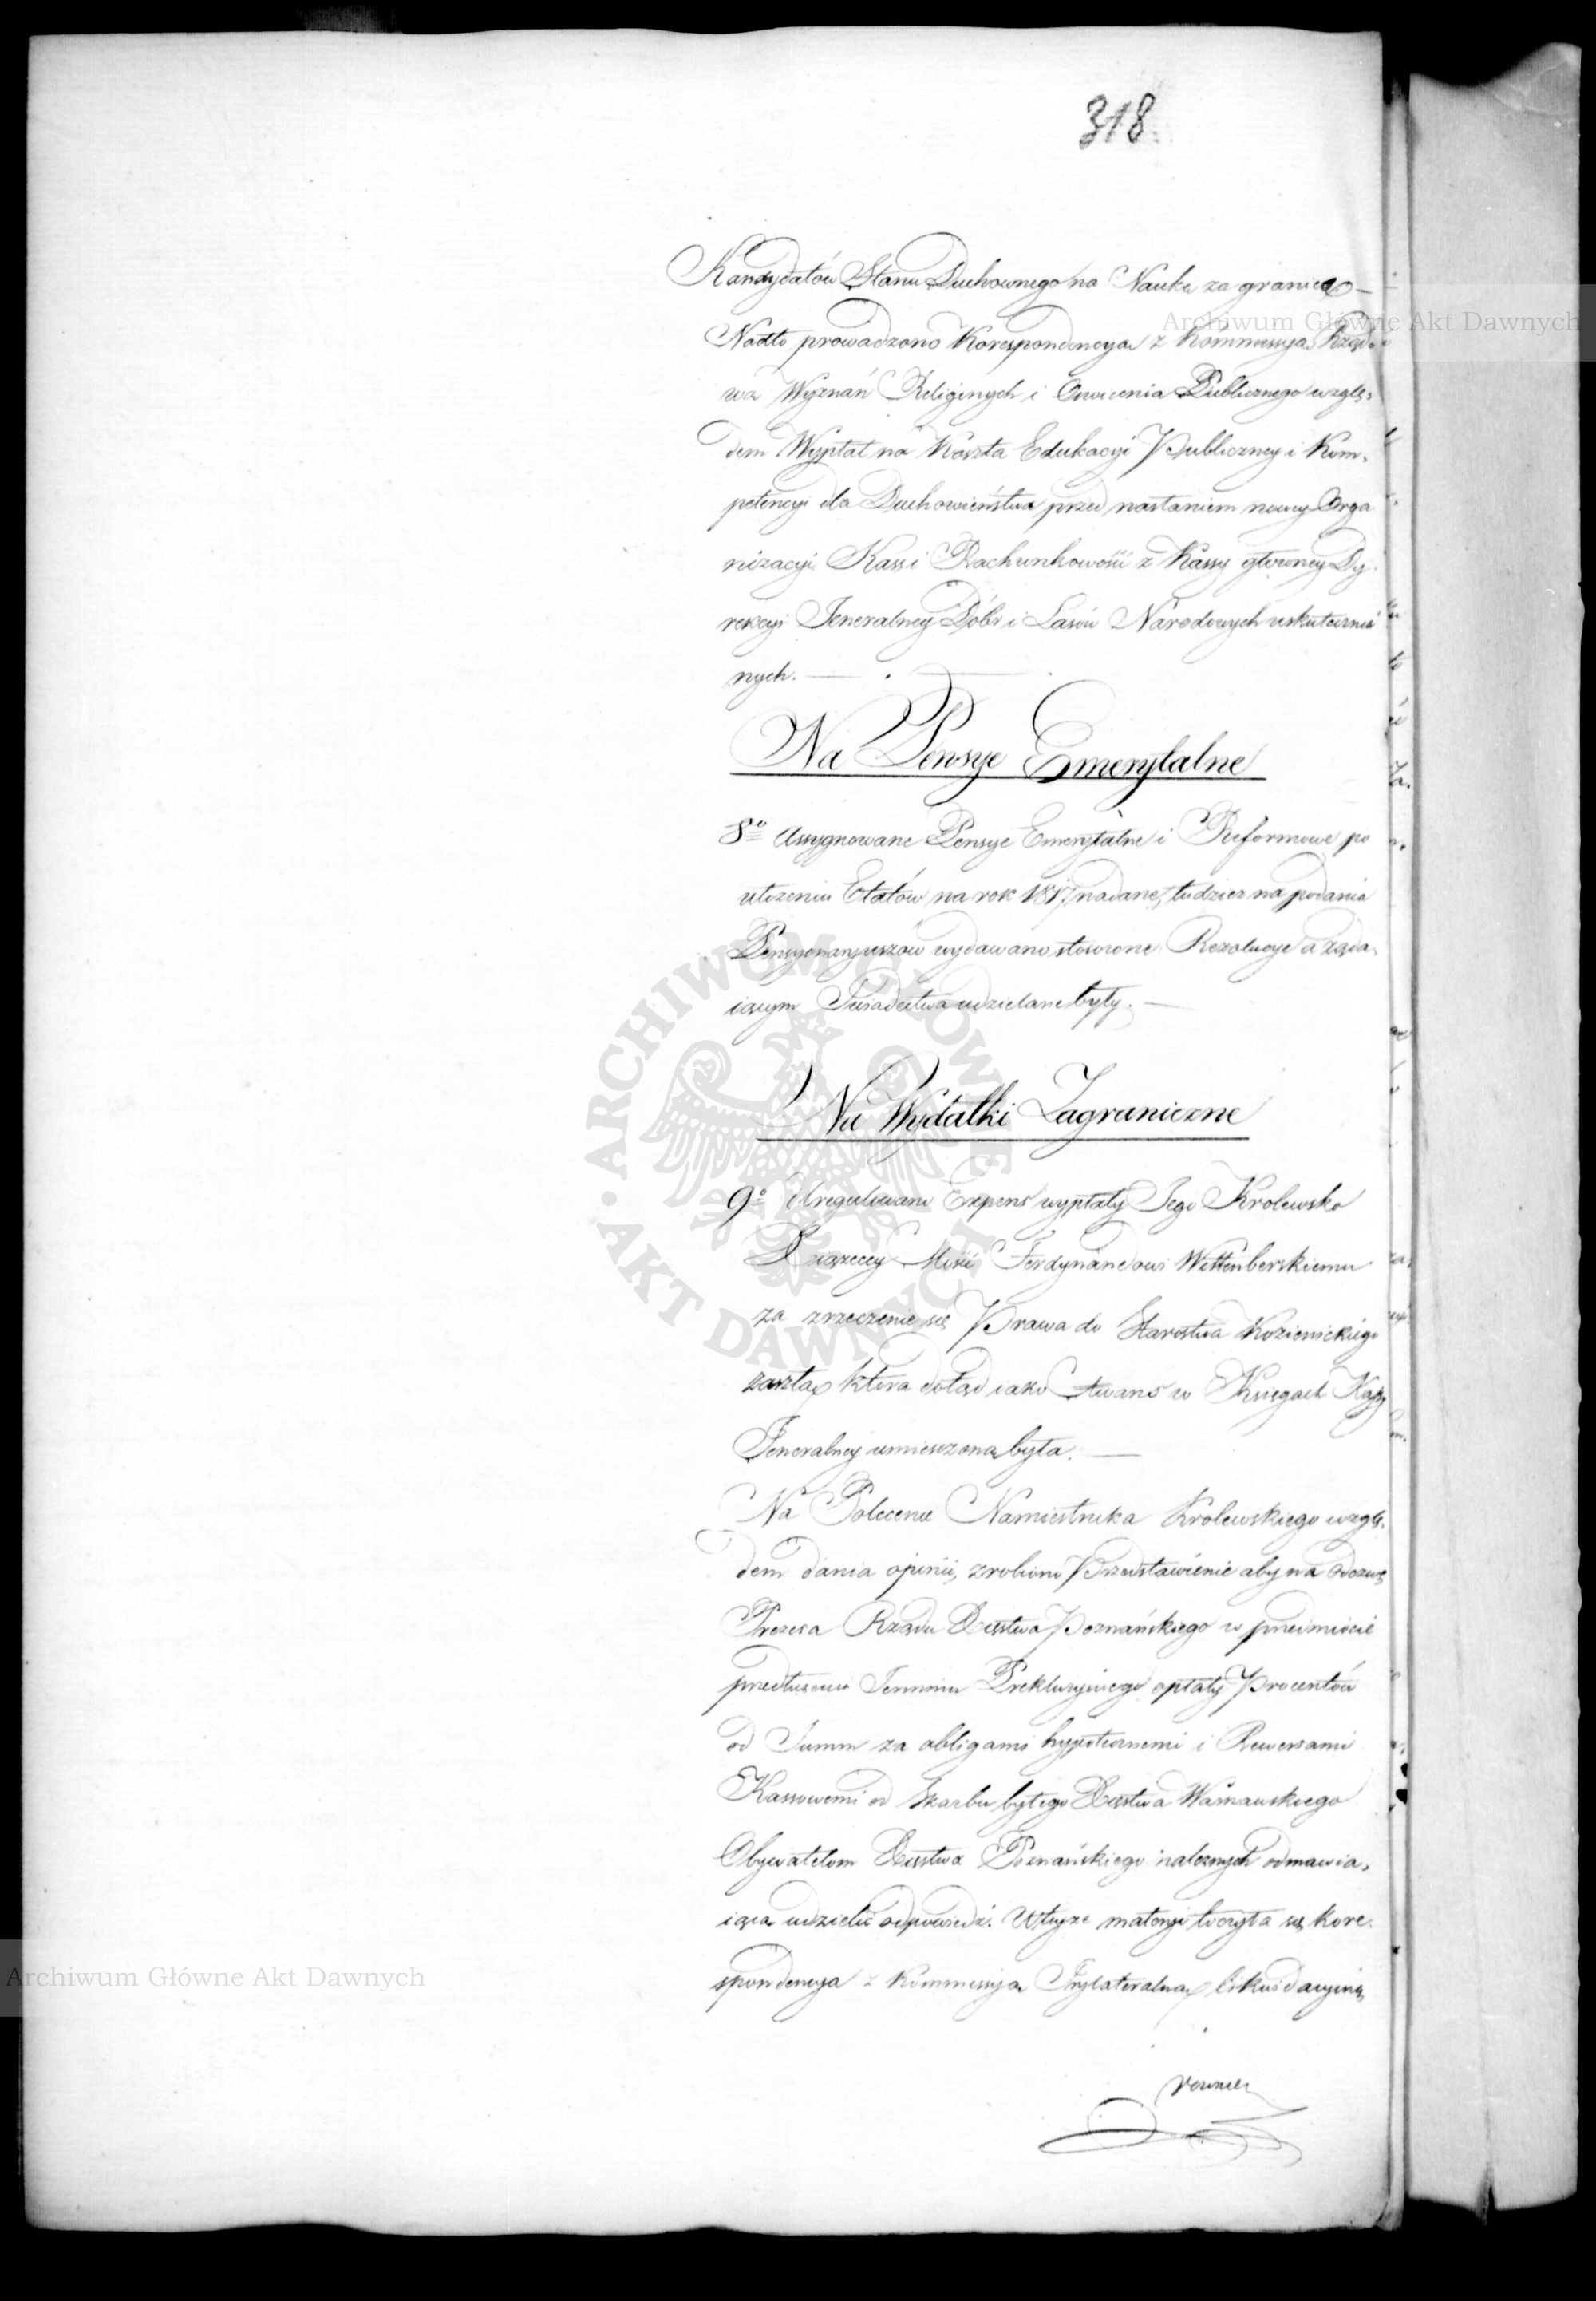 318.
Kandydatów Stanu Duchownego na Naukę za granicę —
Nadto prowadzono Korespondencyą z Kommissyą Rządo=
wą Wyznań Religiinych i Oświcenia Publicznego wzglę=
dem Wypłat na Koszta Edukacyi Publiczney i Kom=
petencyi dla Duchowieństwa przed nastaniem nowey Orga
nizacyi Kass i Rachunkowości z Kassy główney Dy=
rekcyi Jeneralney Dóbr i Lasów Narodowych uskutecznio
nych. —
Na Pensye Emerytalne
8o Assygnowane Pensye Emerytalne i Reformowe po
ułożeniu Etatów na rok 1817 nadane, tudzież na podania
Pensyonaryuszów wydawano stosowne Rezolucye a żąda=
iącym Świadectwa udzielane były. —
Na Wydatki Zagraniczne
9o Uregulowano Expens wypłaty Jego Krolewsko
Xiążęcey Mości Ferdynandowi Wittenberskiemu
za zrzeczenie się Prawa do Starostwa Kozienickiego
zaszłą, która dotąd iako Awans w Księgach Kassy
Jeneralney umieszczona była. —
Na Polecenie Namiestnika Krolewskiego wzglę=
dem dania opinii, zrobiono Przedstawienie aby na Odezwę
Prezesa Rządu Xięstwa Poznańskiego w przedmiocie
przedłużenia Terminu Prekluzyinego opłaty Procentów
od Summ za obligami hypotecznemi i Rewersami
Kassowemi od Skarbu byłego Xięstwa Warszawskiego
Obywatelom Xięstwa Poznańskiego należnych odmawia=
iącą udzielić odpowiedź. W teyże materyi toczyła się kore=
spondencya z Kommissyą Trylateralną likwidacyiną
Archiwum Główne Akt Dawnych
Archiwum Główne Akt Dawnych
ARCHIWUM GŁÓWNE AKT DAWNYCH